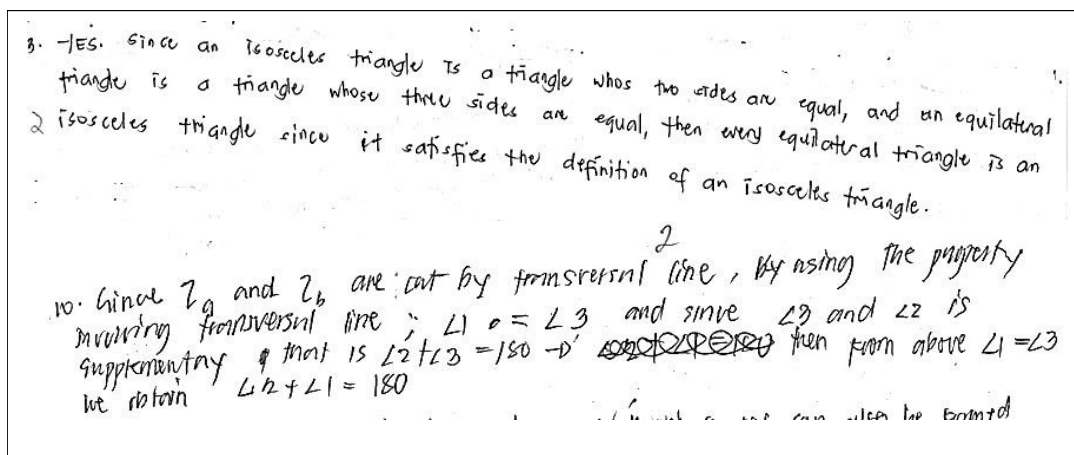 3. YES. Since an isosceles triangle is a triangle whos two sides are equal, and an equilateral
triangle is a triangle whose three sides are equal, then every equilateral triangle is an
2 isosceles triangle since it satisfies the definition of an isosceles triangle.
2
10. Since l_a and l_b are cut by transversal line, by using the property
involving transversal line ; ∠1 = ∠3 and since ∠3 and ∠2 is
supplementary that is ∠2+∠3 = 180 then from above ∠1 = ∠3
we obtain ∠2 + ∠1 = 180
can also be